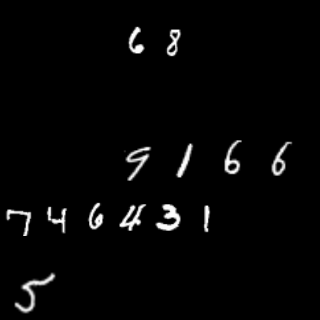 6 8
9 1 6 6
7 4 6 4 3 1
5